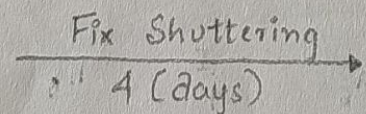 Fix Shuttering
4 (days)